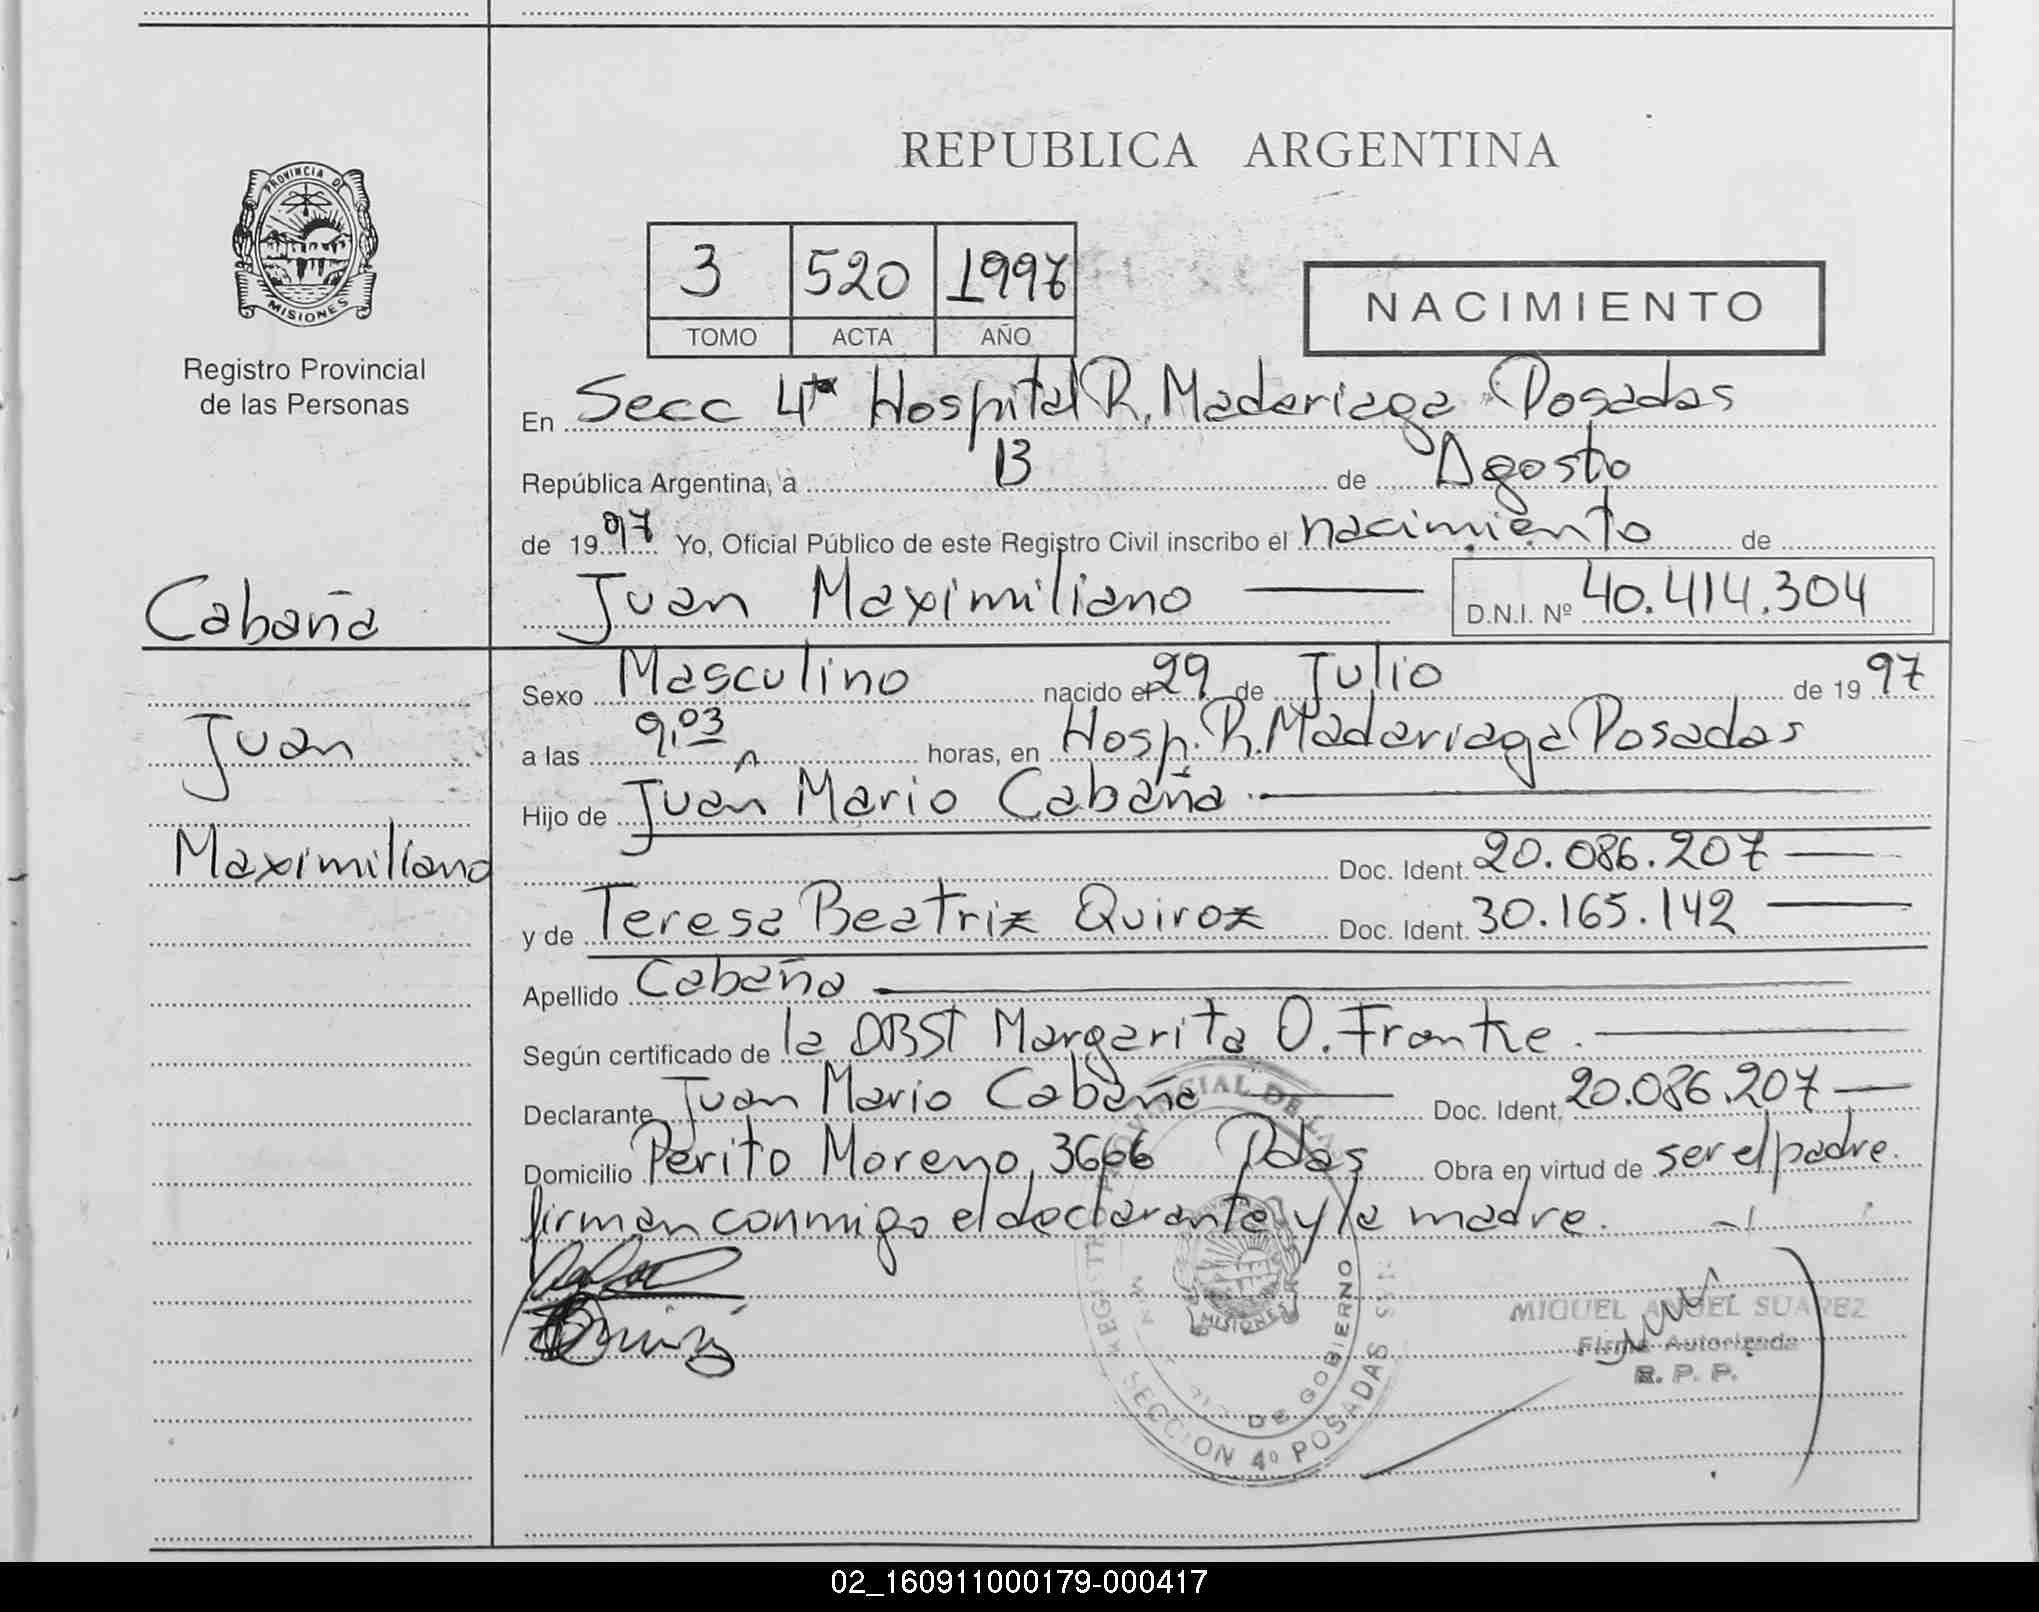 REPUBLICA ARGENTINA
PROVINCIA DE
MISIONES
Registro Provincial
de las Personas
3 520 1997
TOMO ACTA AÑO
NACIMIENTO
En Secc 4ta Hospital R. Madariaga Posadas
República Argentina, a 13 de Agosto
de 1997 Yo, Oficial Público de este Registro Civil inscribo el nacimiento de
Juan Maximiliano D.N.I. Nº 40.414.304
Cabaña
Juan
Maximiliano
Sexo Masculino nacido el 29 de Julio de 1997
a las 9,03 horas, en Hosp. R. Madariaga Posadas
Hijo de Juan Mario Cabaña
Doc. Ident. 20.086.207
y de Teresa Beatriz Quiroz Doc. Ident. 30.165.142
Apellido Cabaña
Según certificado de la OBST Margarita O. Franke.
Declarante Juan Mario Cabaña Doc. Ident. 20.086.207
Domicilio Perito Moreno, 3666 Pdas Obra en virtud de ser el padre.
firman conmigo el declarante y la madre.
MISIONES
DE GOBIERNO
SECCION 4º POSADAS
MIGUEL ANGEL SUAREZ
Firma Autorizada
R. P. P.
02_160911000179-000417